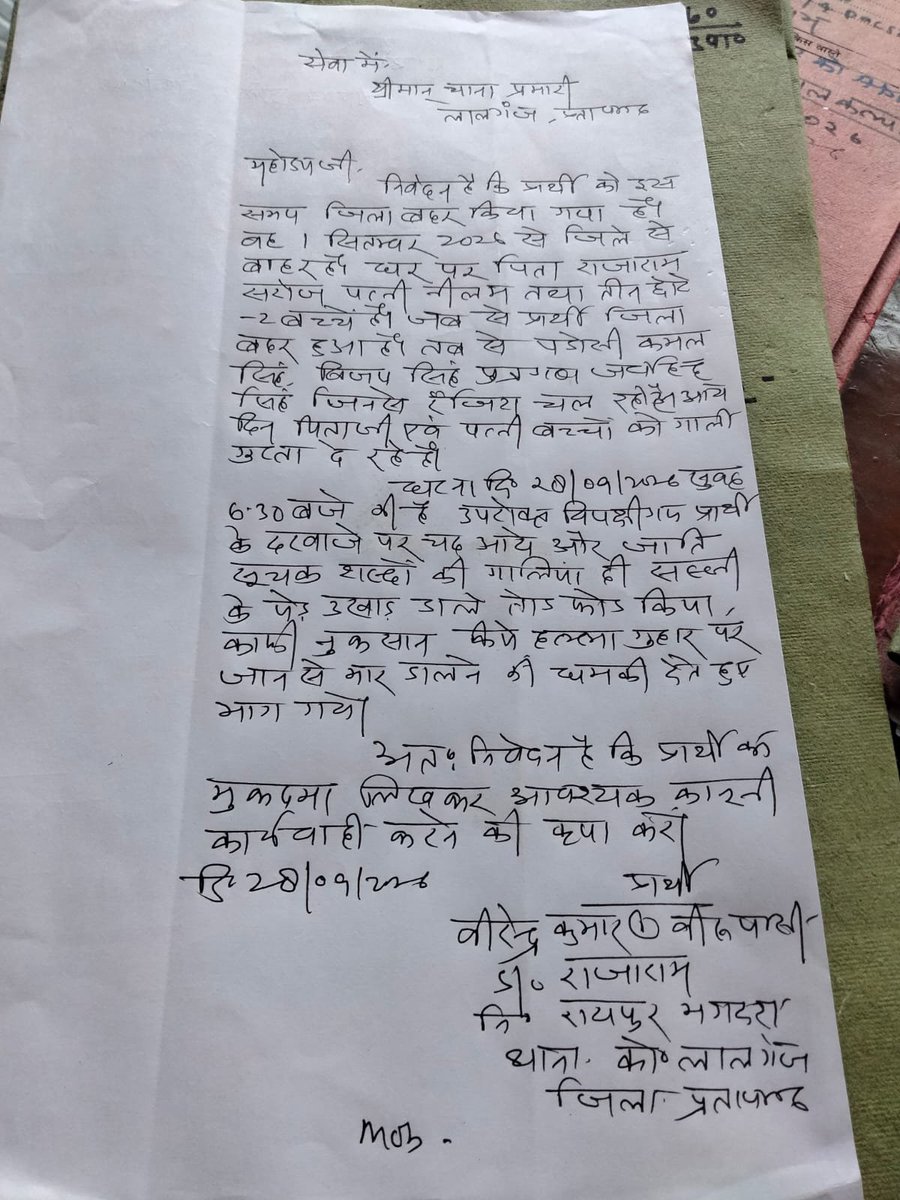 सेवा में,
श्रीमान थाना प्रभारी
लालगंज, प्रतापगढ
महोदय जी,
निवेदन है कि प्रार्थी को इस
समय जिला बहर किया गया है।
वह 1 सितम्बर 2026 से जिले से
बाहर है। घर पर पिता राजाराम
सरोज पत्नी नीलम तथा तीन छोटे
-2 बच्चें है। जब से प्रार्थी जिला
बहर हुआ है। तब से पडोसी कमल
सिंह, विजय सिंह पुत्रगण
सिंह जिनसे रंजिश चल रही है। आये
दिन पिताजी एवं पत्नी बच्चों को गाली
गुप्ता दे रहे है।
घटना दि॰ 28/09/2026 सुबह
6.30 बजे की है उपरोक्त विपक्षीगण प्रार्थी
के दरवाजे पर चढ आये और जाति
सूचक शब्दों की गालियां दी सब्जी
के पेड़ उखाड़ डाले तोड फोड किया,
काफी नुकसान किये हल्ला गुहार पर
जान से मार डालने की धमकी देते हुए
भाग गये।
अतः निवेदन है कि प्रार्थी का
मुकदमा लिखकर आवश्यक कानूनी
कार्यवाही करने की कृपा करें।
दि॰ 28/09/2026
प्रार्थी
वीरेन्द्र कुमार वीरू पासी
s/o राजाराम
नि॰ रायपुर भगदरा
थाना. को॰ लालगंज
जिला. प्रतापगढ
Mob -
60